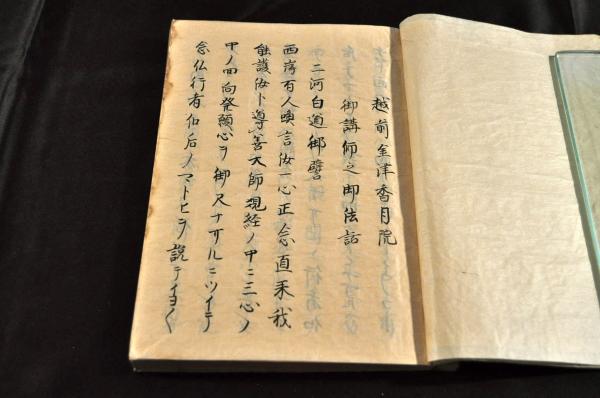 越前金津香月院
御講師之御法話
二河白道御譬
西岸有人喚言汝一心正念直来我
能護汝ト導善大師観経ノ中ニ三心ノ
中ノ回向発願心ヲ御尺ナサルニツイテ
念仏行者他后ノマトヒヲ説テイヨ〱